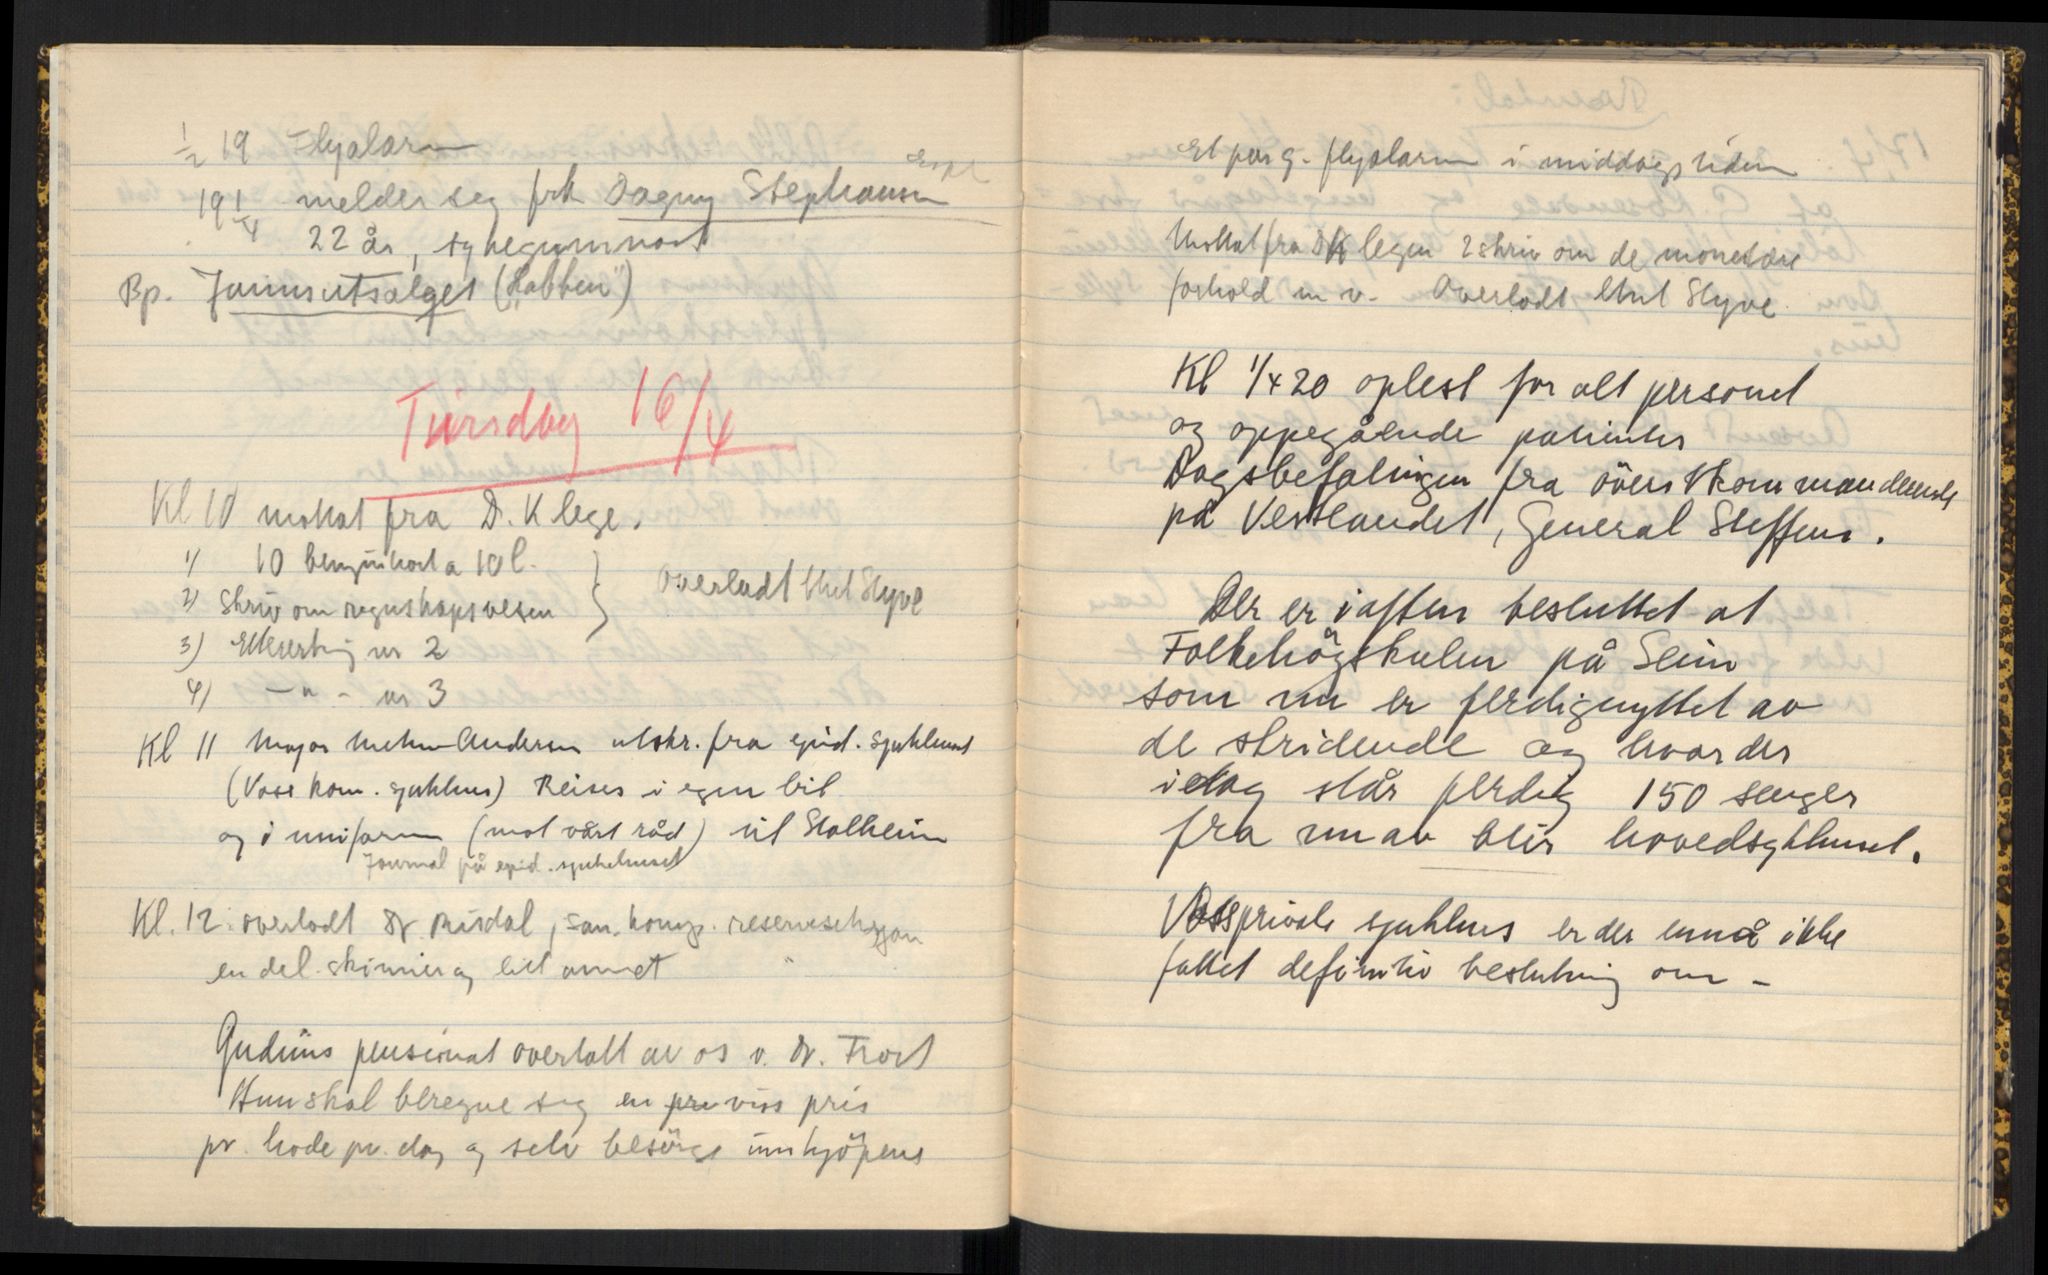 1/2 19 Flyalarm
19 1/4 melder seg frk Dagny Stephansen
22 år, sykegymnast
Bp. Jarnsutsalget ("Habben")
Tirsdag 16/4
Kl 10 mottat fra D. K lege.
1) 10 bensinkort a 10 l.
2) Skriv om regnskapsvesen } Overladt Slyve
3) Etterretning nr 2
4) — " — nr 3
Kl 11 Major Andersen utskr. fra epid. sjukhuset
(Voss kom. sjukhus) Reises i egen bil
og i uniform (mot vårt råd) til Stalheim
Journal på epid. sjukehuset
Kl. 12. overlodt Dr. Risdal, san. komp.
en del skinner og litt annet
Gudrins pensionat overtatt av os v. Dr. Frost
Hun skal beregne seg en pri viss pris
pr. hode pr. dag og selv besörge innkjöpene
Et par g. flyalarm i middagstiden
Mottat fra DK legen 2 skriv om de monetære
forhold m v. Overlodt Slyve.
Kl 1/4 20 oplest for alt personel
og oppegående patienter
Dagsbefalingen fra överstkommanderende
på Vestlandet, General Steffens.
Der er i aften besluttet at
Folkehögskulen på Seim
som nu er ferdignyttet av
de stridende og hvor der
idag står ferdig 150 senger
fra nu av blir hovedsykhuset.
Voss private sjukhus er der ennå ikke
fattet definitiv beslutning om -